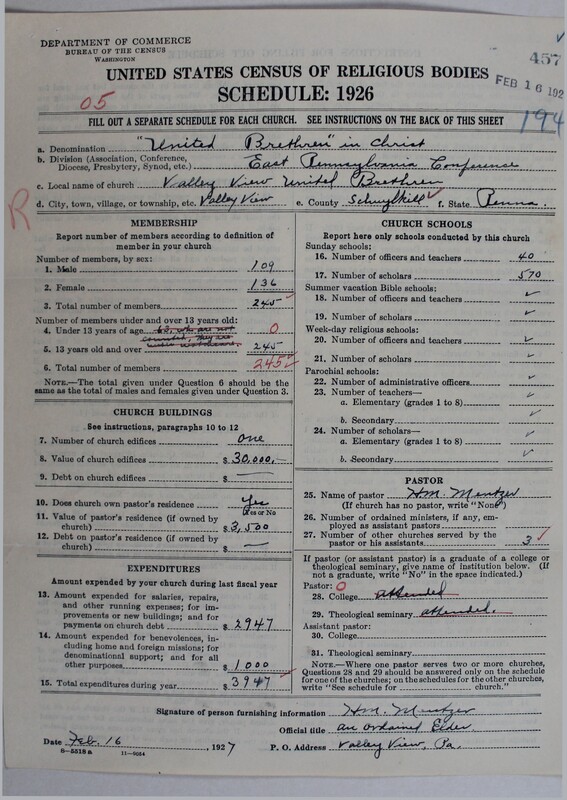 DEPARTMENT OF COMMERCE
BUREAU OF THE CENSUS
WASHINGTON
457
FEB 16 192
UNITED STATES CENSUS OF RELIGIOUS BODIES
SCHEDULE: 1926
05
194
FILL OUT A SEPARATE SCHEDULE FOR EACH CHURCH. SEE INSTRUCTIONS ON THE BACK OF THIS SHEET
a. Denomination "United Brethren" in Christ
b. Division (Association, Conference, Diocese, Presbytery, Synod, etc.) East Pennsylvania Conference
c. Local name of church Valley View United Brethren
d. City, town, village, or township, etc. Valley View e. County Schuylkill f. State Penna.
R
MEMBERSHIP
Report number of members according to definition of member in your church
Number of members, by sex:
1. Male 109
2. Female 136
3. Total number of members 245
Number of members under and over 13 years old:
4. Under 13 years of age 63, who are not 0
5. 13 years old and over 245
6. Total number of members 245
NOTE.—The total given under Question 6 should be the same as the total of males and females given under Question 3.
CHURCH BUILDINGS
See instructions, paragraphs 10 to 12
7. Number of church edifices one
8. Value of church edifices $ 30,000.-
9. Debt on church edifices $ —
10. Does church own pastor's residence Yes
(Yes or No)
11. Value of pastor's residence (if owned by church) $ 3,500
12. Debt on pastor's residence (if owned by church) $ —
EXPENDITURES
Amount expended by church during last fiscal year
13. Amount expended for salaries, repairs, and other running expenses; for improvements or new buildings; and for payments on church debt $ 2947
14. Amount expended for benevolences, including home and foreign missions; for denominational support; and for all other purposes $ 1000
15. Total expenditures during year $ 3947
CHURCH SCHOOLS
Report here only schools conducted by this church
Sunday schools:
16. Number of officers and teachers 40
17. Number of scholars 570
Summer vacation Bible schools:
18. Number of officers and teachers ✓
19. Number of scholars ✓
Week-day religious schools:
20. Number of officers and teachers ✓
21. Number of scholars ✓
Parochial schools:
22. Number of administrative officers ✓
23. Number of teachers—
a. Elementary (grades 1 to 8) ✓
b. Secondary ✓
24. Number of scholars—
a. Elementary (grades 1 to 8) ✓
b. Secondary ✓
PASTOR
25. Name of pastor H.M. Mentzer
(If church has no pastor, write "None")
26. Number of ordained ministers, if any, employed as assistant pastors
27. Number of other churches served by the pastor or his assistants 3
If pastor (or assistant pastor) is a graduate of a college or theological seminary, give name of institution below. (If not a graduate, write "No" in the space indicated.)
Pastor: 0
28. College attended
29. Theological seminary attended.
Assistant pastor:
30. College
31. Theological seminary
NOTE.—Where one pastor serves two or more churches, Questions 28 and 29 should be answered only on the schedule for one of the churches; on the schedules for the other churches, write "See schedule for church."
Signature of person furnishing information H.M. Mentzer
Official title an Ordained Elder
Date Feb. 16, 1927 P. O. Address Valley View, Pa.
8—5518 a 11—9064